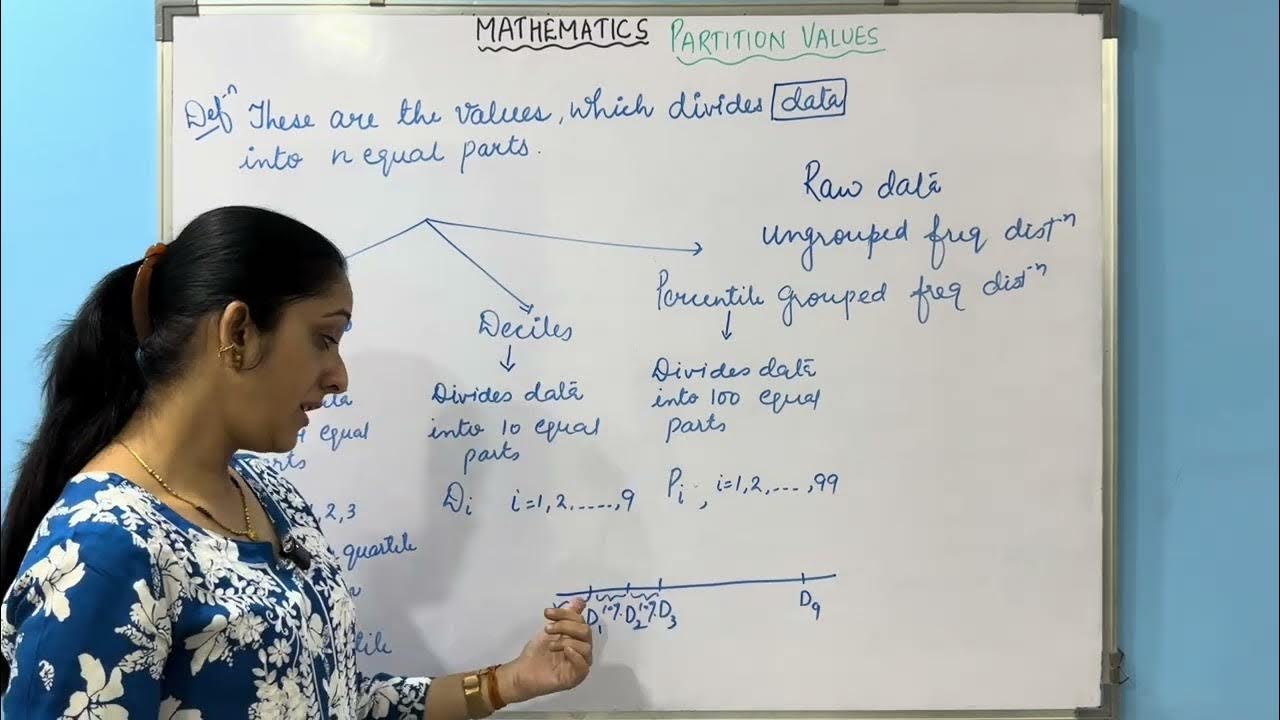 MATHEMATICS PARTITION VALUES
Defⁿ These are the values, which divides data
into n equal parts.
Raw data
ungrouped freq distⁿ
Percentile grouped freq distⁿ
Deciles
Divides data
into 10 equal
parts
Di i=1,2,.....,9
Divides data
into 100 equal
parts
Pi, i=1,2,---,99
equal
2,3
quartile
D₁ 10% D₂ 10% D₃ D₉